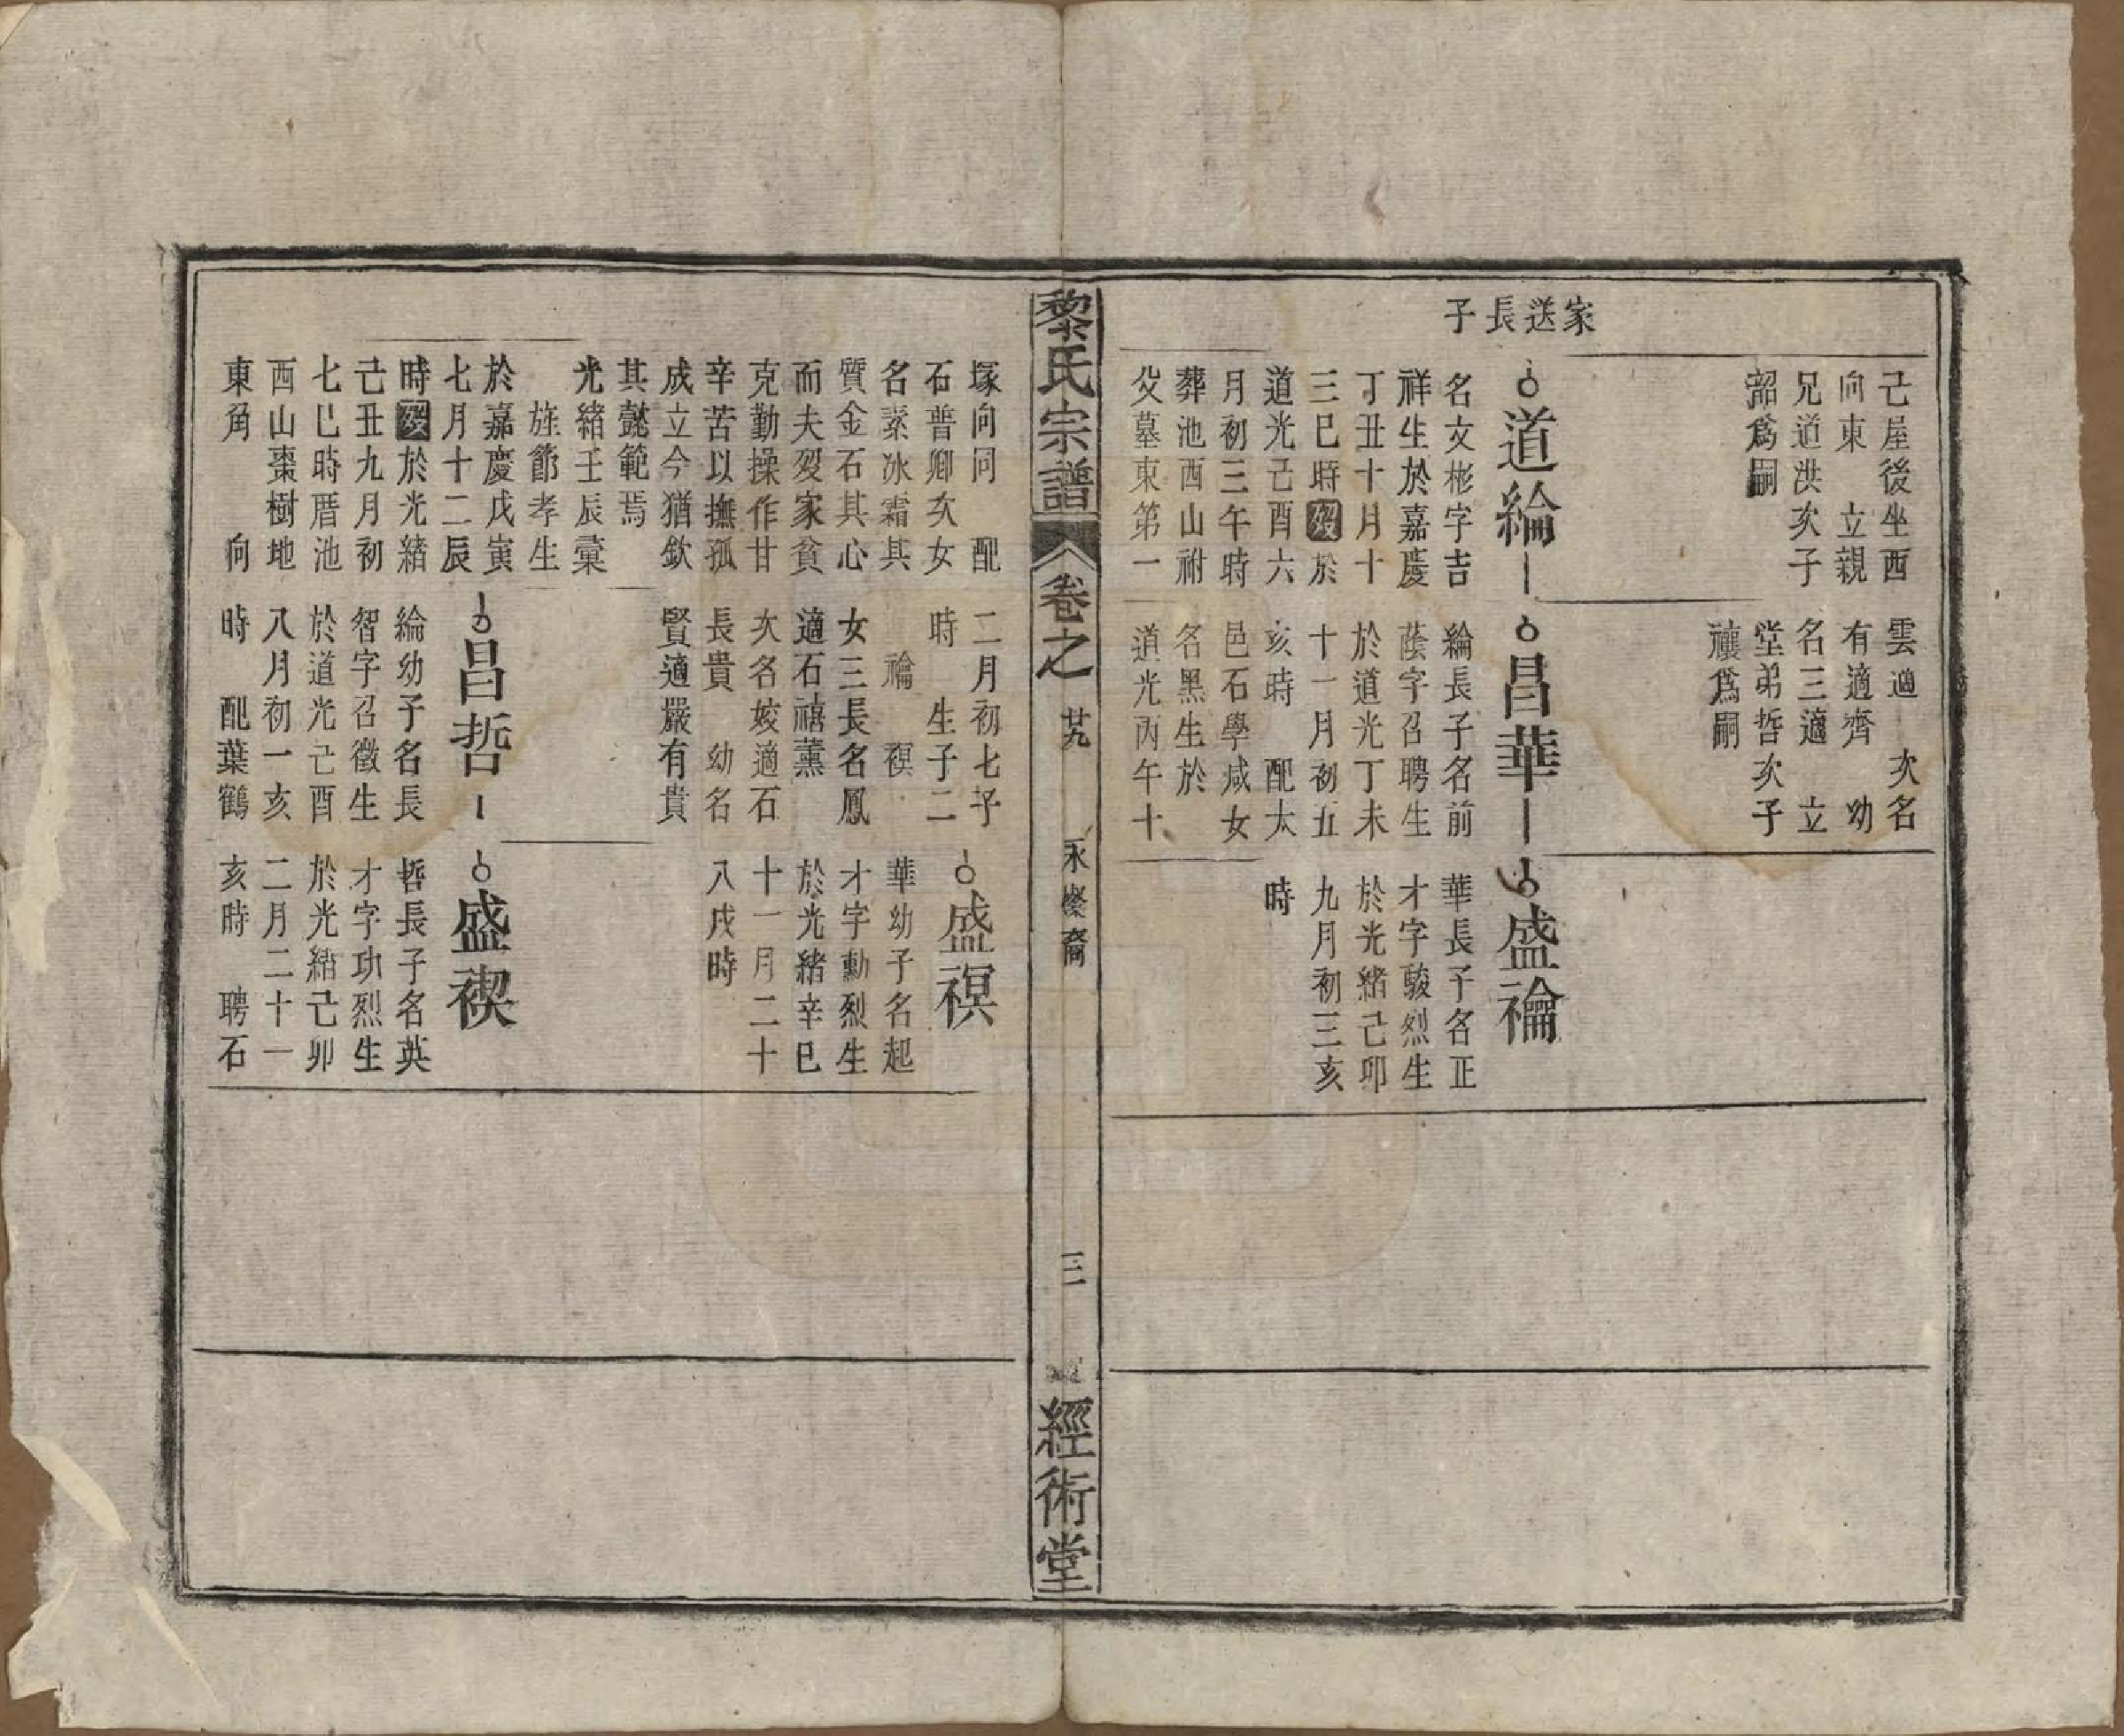 家送長子
己屋後坐西
向東　立親
兄道洪次子
韶爲嗣
雲適　次名
有適齊　幼
名三適　立
堂弟哲次子
禳爲嗣
道綸
名文彬字吉
祥生於嘉慶
丁丑十月十
三巳時歿於
道光己酉六
月初三午時
葬池西山祔
父墓東第一
昌華
綸長子名前
蔭字召聘生
於道光丁未
十一月初五
亥時　配太
邑石學咸女
名黑生於
道光丙午十
盛禴
華長子名正
才字駿烈生
於光緒己卯
九月初三亥
時
黎氏宗譜
卷之
廿九
永燦裔
三
經術堂
塚向同　配
石普卿次女
名素冰霜其
質金石其心
而夫歿家貧
克勤操作甘
辛苦以撫孤
成立今猶欽
其懿範焉
光緒壬辰彙
旌節孝生
於嘉慶戊寅
七月十二辰
時歿於光緒
己丑九月初
七巳時厝池
西山棗樹地
東角　　向
二月初七子
時　生子二
禴　禊
女三長名鳳
適石禧薰
次名姣適石
長貴　幼名
賢適嚴有貴
盛禊
華幼子名起
才字勳烈生
於光緒辛巳
十一月二十
八戌時
昌哲
綸幼子名長
智字召徵生
於道光己酉
八月初一亥
時　配葉鶴
盛禊
哲長子名英
才字功烈生
於光緒己卯
二月二十一
亥時　聘石